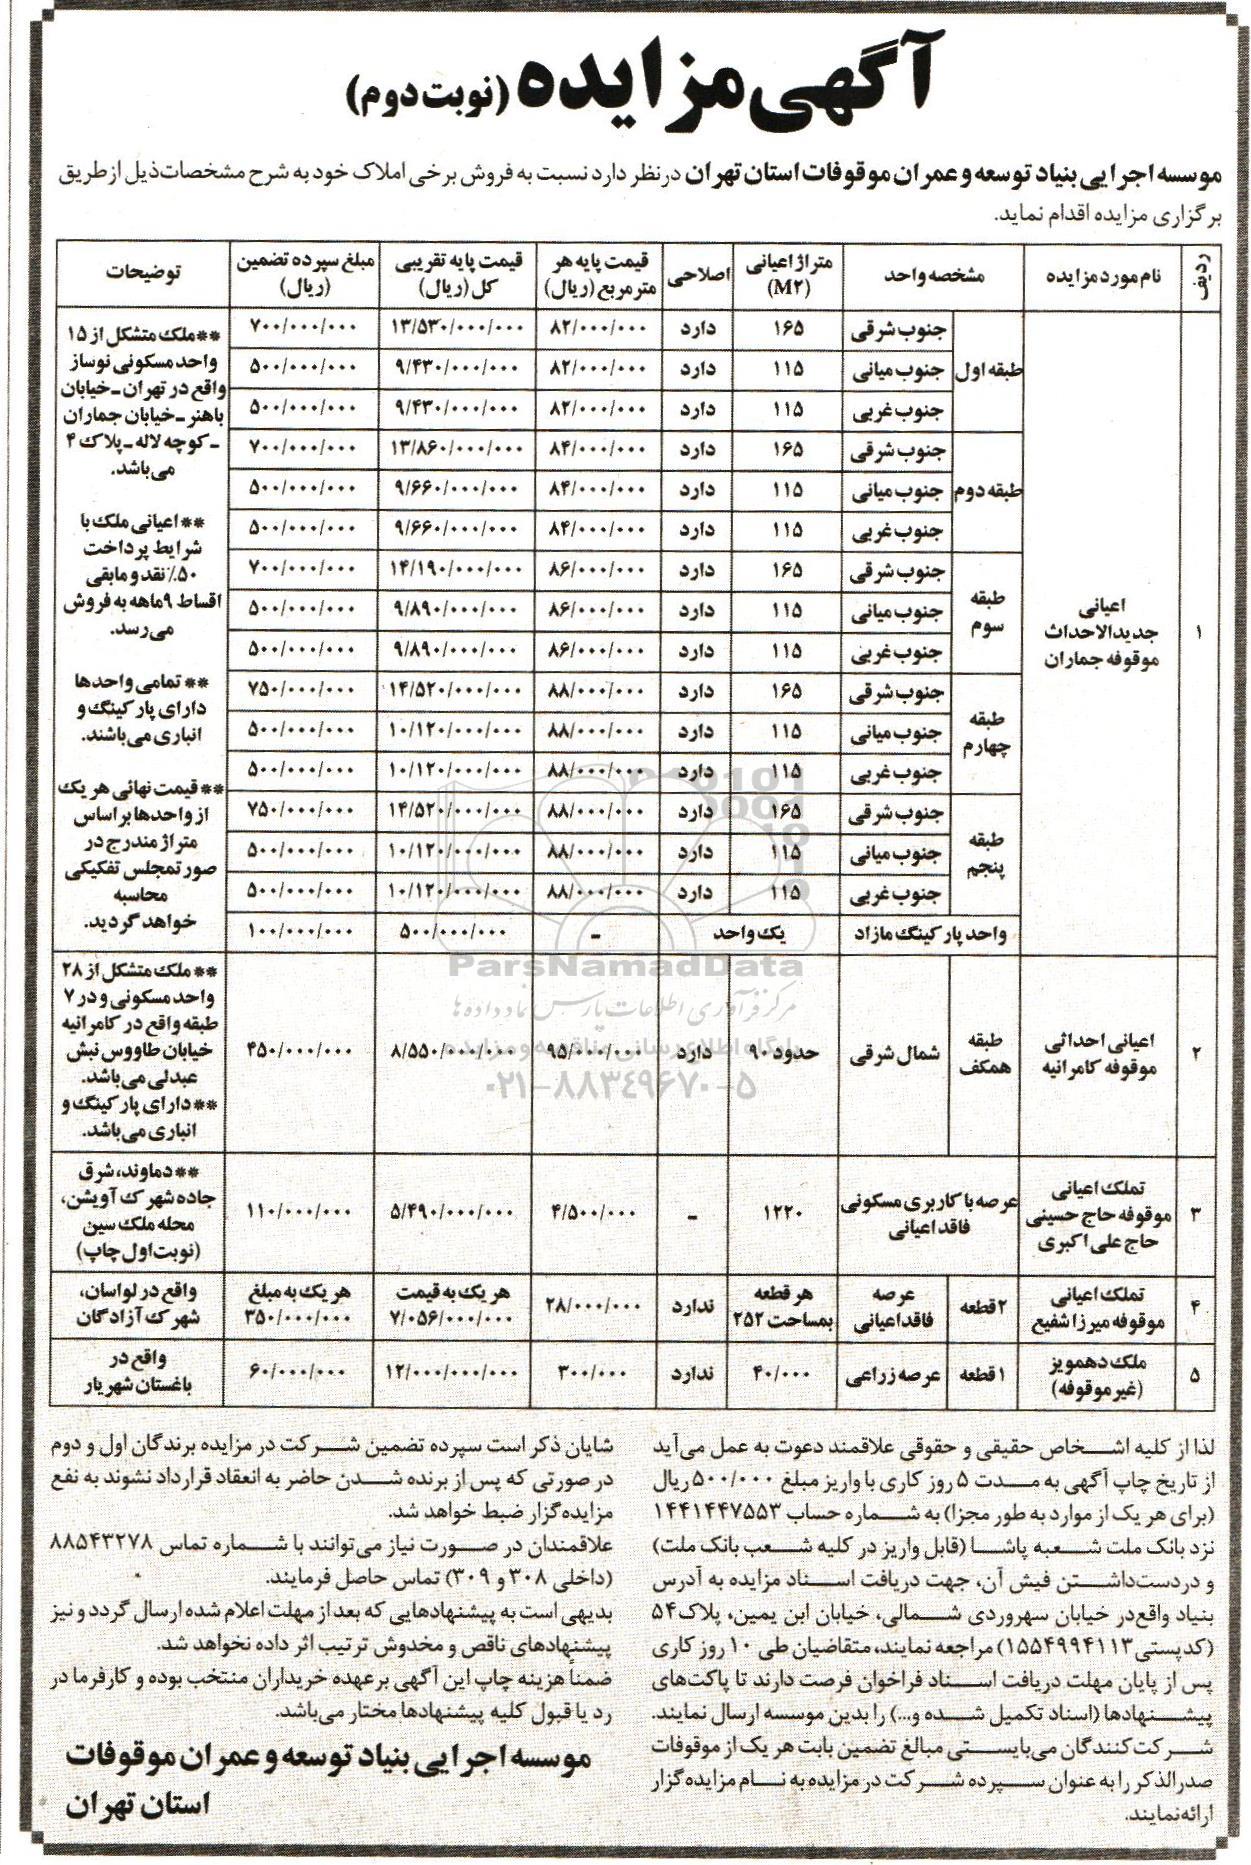 آگهی مزایده (نوبت دوم)
موسسه اجرایی بنیاد توسعه و عمران موقوفات استان تهران در نظر دارد نسبت به فروش برخی املاک خود به شرح مشخصات ذیل از طریق
برگزاری مزایده اقدام نماید.
ردیف | نام مورد مزایده | مشخصه واحد | متراژ اعیانی (M۲) | اصلاحی | قیمت پایه هر مترمربع (ریال) | قیمت پایه تقریبی کل (ریال) | مبلغ سپرده تضمین (ریال) | توضیحات
۱ | اعیانی جدیدالاحداث موقوفه جماران
طبقه اول | جنوب شرقی | ۱۶۵ | دارد | ۸۲/۰۰۰/۰۰۰ | ۱۳/۵۳۰/۰۰۰/۰۰۰ | ۷۰۰/۰۰۰/۰۰۰
جنوب میانی | ۱۱۵ | دارد | ۸۲/۰۰۰/۰۰۰ | ۹/۴۳۰/۰۰۰/۰۰۰ | ۵۰۰/۰۰۰/۰۰۰
جنوب غربی | ۱۱۵ | دارد | ۸۲/۰۰۰/۰۰۰ | ۹/۴۳۰/۰۰۰/۰۰۰ | ۵۰۰/۰۰۰/۰۰۰
طبقه دوم | جنوب شرقی | ۱۶۵ | دارد | ۸۴/۰۰۰/۰۰۰ | ۱۳/۸۶۰/۰۰۰/۰۰۰ | ۷۰۰/۰۰۰/۰۰۰
جنوب میانی | ۱۱۵ | دارد | ۸۴/۰۰۰/۰۰۰ | ۹/۶۶۰/۰۰۰/۰۰۰ | ۵۰۰/۰۰۰/۰۰۰
جنوب غربی | ۱۱۵ | دارد | ۸۴/۰۰۰/۰۰۰ | ۹/۶۶۰/۰۰۰/۰۰۰ | ۵۰۰/۰۰۰/۰۰۰
طبقه سوم | جنوب شرقی | ۱۶۵ | دارد | ۸۶/۰۰۰/۰۰۰ | ۱۴/۱۹۰/۰۰۰/۰۰۰ | ۷۰۰/۰۰۰/۰۰۰
جنوب میانی | ۱۱۵ | دارد | ۸۶/۰۰۰/۰۰۰ | ۹/۸۹۰/۰۰۰/۰۰۰ | ۵۰۰/۰۰۰/۰۰۰
جنوب غربی | ۱۱۵ | دارد | ۸۶/۰۰۰/۰۰۰ | ۹/۸۹۰/۰۰۰/۰۰۰ | ۵۰۰/۰۰۰/۰۰۰
طبقه چهارم | جنوب شرقی | ۱۶۵ | دارد | ۸۸/۰۰۰/۰۰۰ | ۱۴/۵۲۰/۰۰۰/۰۰۰ | ۷۵۰/۰۰۰/۰۰۰
جنوب میانی | ۱۱۵ | دارد | ۸۸/۰۰۰/۰۰۰ | ۱۰/۱۲۰/۰۰۰/۰۰۰ | ۵۰۰/۰۰۰/۰۰۰
جنوب غربی | ۱۱۵ | دارد | ۸۸/۰۰۰/۰۰۰ | ۱۰/۱۲۰/۰۰۰/۰۰۰ | ۵۰۰/۰۰۰/۰۰۰
طبقه پنجم | جنوب شرقی | ۱۶۵ | دارد | ۸۸/۰۰۰/۰۰۰ | ۱۴/۵۲۰/۰۰۰/۰۰۰ | ۷۵۰/۰۰۰/۰۰۰
جنوب میانی | ۱۱۵ | دارد | ۸۸/۰۰۰/۰۰۰ | ۱۰/۱۲۰/۰۰۰/۰۰۰ | ۵۰۰/۰۰۰/۰۰۰
جنوب غربی | ۱۱۵ | دارد | ۸۸/۰۰۰/۰۰۰ | ۱۰/۱۲۰/۰۰۰/۰۰۰ | ۵۰۰/۰۰۰/۰۰۰
واحد پارکینگ مازاد | یک واحد | - | ۵۰۰/۰۰۰/۰۰۰ | ۱۰۰/۰۰۰/۰۰۰
**ملک متشکل از ۱۵
واحد مسکونی نوساز
واقع در تهران ـ خیابان
باهنر ـ خیابان جماران
ـ کوچه لاله ـ پلاک ۴
می‌باشد.
**اعیانی ملک با
شرایط پرداخت
۵۰٪ نقد و مابقی
اقساط ۹ ماهه به فروش
می‌رسد.
** تمامی واحدها
دارای پارکینگ و
انباری می‌باشند.
**قیمت نهائی هر یک
از واحدها بر اساس
متراژ مندرج در
صورتمجلس تفکیکی
محاسبه
خواهد گردید.
۲ | اعیانی احداثی موقوفه کامرانیه | طبقه همکف | شمال شرقی | حدود ۹۰ | دارد | ۹۵/۰۰۰/۰۰۰ | ۸/۵۵۰/۰۰۰/۰۰۰ | ۴۵۰/۰۰۰/۰۰۰
**ملک متشکل از ۲۸
واحد مسکونی و در ۷
طبقه واقع در کامرانیه
خیابان طاووس نبش
عبدلی می‌باشد.
**دارای پارکینگ و
انباری می‌باشد.
۳ | تملک اعیانی موقوفه حاج حسینی حاج علی اکبری | عرصه با کاربری مسکونی فاقد اعیانی | ۱۲۲۰ | - | ۴/۵۰۰/۰۰۰ | ۵/۴۹۰/۰۰۰/۰۰۰ | ۱۱۰/۰۰۰/۰۰۰
**دماوند، شرق
جاده شهرک آویشن،
محله ملک سین
(نوبت اول چاپ)
۴ | تملک اعیانی موقوفه میرزا شفیع | ۲ قطعه | عرصه فاقد اعیانی | هر قطعه بمساحت ۲۵۲ | ندارد | ۲۸/۰۰۰/۰۰۰ | هر یک به قیمت ۷/۰۵۶/۰۰۰/۰۰۰ | هر یک به مبلغ ۳۵۰/۰۰۰/۰۰۰ | واقع در لواسان، شهرک آزادگان
۵ | ملک دهمویز (غیر موقوفه) | ۱ قطعه | عرصه زراعی | ۴۰/۰۰۰ | ندارد | ۳۰۰/۰۰۰ | ۱۲/۰۰۰/۰۰۰/۰۰۰ | ۶۰/۰۰۰/۰۰۰ | واقع در باغستان شهریار
ParsNamadData
مرکز فرآوری اطلاعات پارس نماد داده ها
پایگاه اطلاع رسانی مناقصه و مزایده
۰۲۱-۸۸۳۴۹۶۷۰-۵
لذا از کلیه اشخاص حقیقی و حقوقی علاقمند دعوت به عمل می‌آید
از تاریخ چاپ آگهی به مدت ۵ روز کاری با واریز مبلغ ۵۰۰/۰۰۰ ریال
(برای هر یک از موارد به طور مجزا) به شماره حساب ۱۴۴۱۴۴۷۵۵۳
نزد بانک ملت شعبه پاشا (قابل واریز در کلیه شعب بانک ملت)
و در دست داشتن فیش آن، جهت دریافت اسناد مزایده به آدرس
بنیاد واقع در خیابان سهروردی شمالی، خیابان ابن یمین، پلاک ۵۴
(کدپستی ۱۵۵۴۹۹۴۱۱۳) مراجعه نمایند، متقاضیان طی ۱۰ روز کاری
پس از پایان مهلت دریافت اسناد فراخوان فرصت دارند تا پاکت‌های
پیشنهادها (اسناد تکمیل شده و...) را بدین موسسه ارسال نمایند.
شرکت‌کنندگان می‌بایستی مبالغ تضمین بابت هر یک از موقوفات
صدرالذکر را به عنوان سپرده شرکت در مزایده به نام مزایده‌گزار
ارائه نمایند.
شایان ذکر است سپرده تضمین شرکت در مزایده برندگان اول و دوم
در صورتی که پس از برنده شدن حاضر به انعقاد قرارداد نشوند به نفع
مزایده‌گزار ضبط خواهد شد.
علاقمندان در صورت نیاز می‌توانند با شماره تماس ۸۸۵۴۳۲۷۸
(داخلی ۳۰۸ و ۳۰۹) تماس حاصل فرمایند.
بدیهی است به پیشنهادهایی که بعد از مهلت اعلام شده ارسال گردد و نیز
پیشنهادهای ناقص و مخدوش ترتیب اثر داده نخواهد شد.
ضمناً هزینه چاپ این آگهی بر عهده خریداران منتخب بوده و کارفرما در
رد یا قبول کلیه پیشنهادها مختار می‌باشد.
موسسه اجرایی بنیاد توسعه و عمران موقوفات
استان تهران